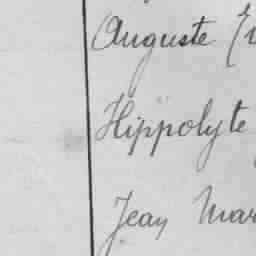 Auguste
Hippolyte
Jean Mar